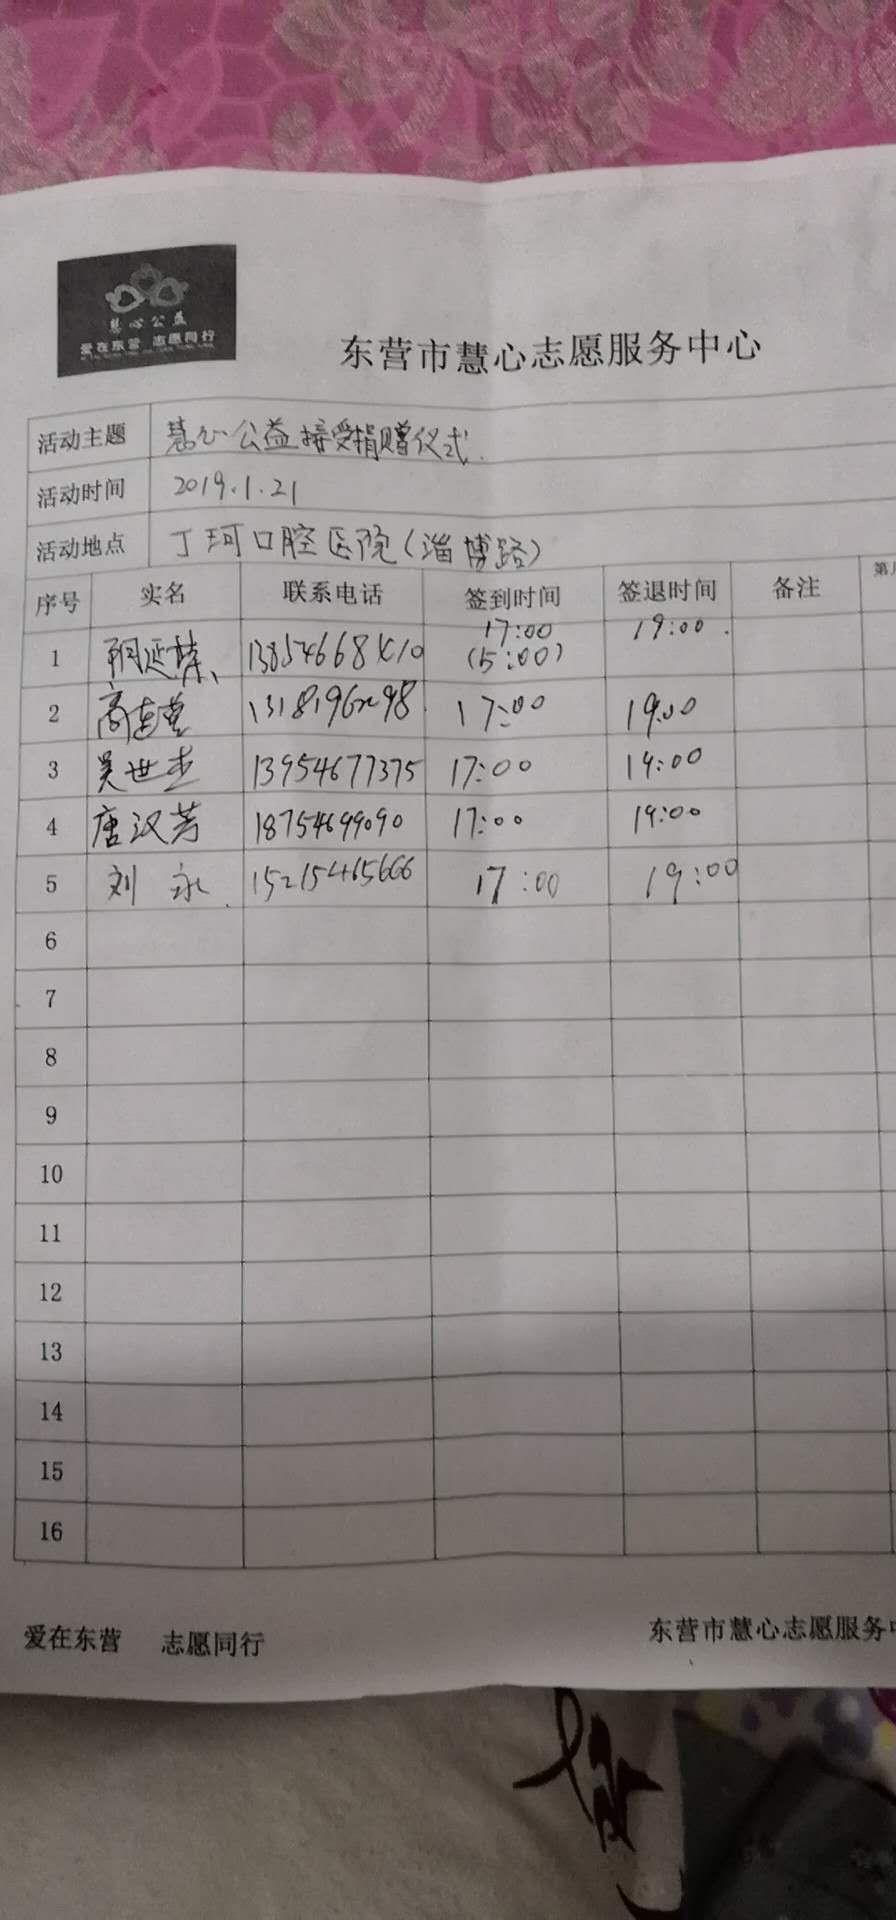 慧心公益
爱在东营 志愿同行
东营市慧心志愿服务中心
活动主题 慧心公益接受捐赠仪式.
活动时间 2019.1.21
活动地点 丁珂口腔医院(淄博路)
序号 实名 联系电话 签到时间 签退时间 备注
1 17:00 (5:00) 19:00.
2 17:00 19:00
3 吴世杰 13954677375 17:00 19:00
4 唐汉芳 18754699090 17:00 19:00
5 刘永 15215465666 17:00 19:00
6
7
8
9
10
11
12
13
14
15
16
爱在东营 志愿同行 东营市慧心志愿服务